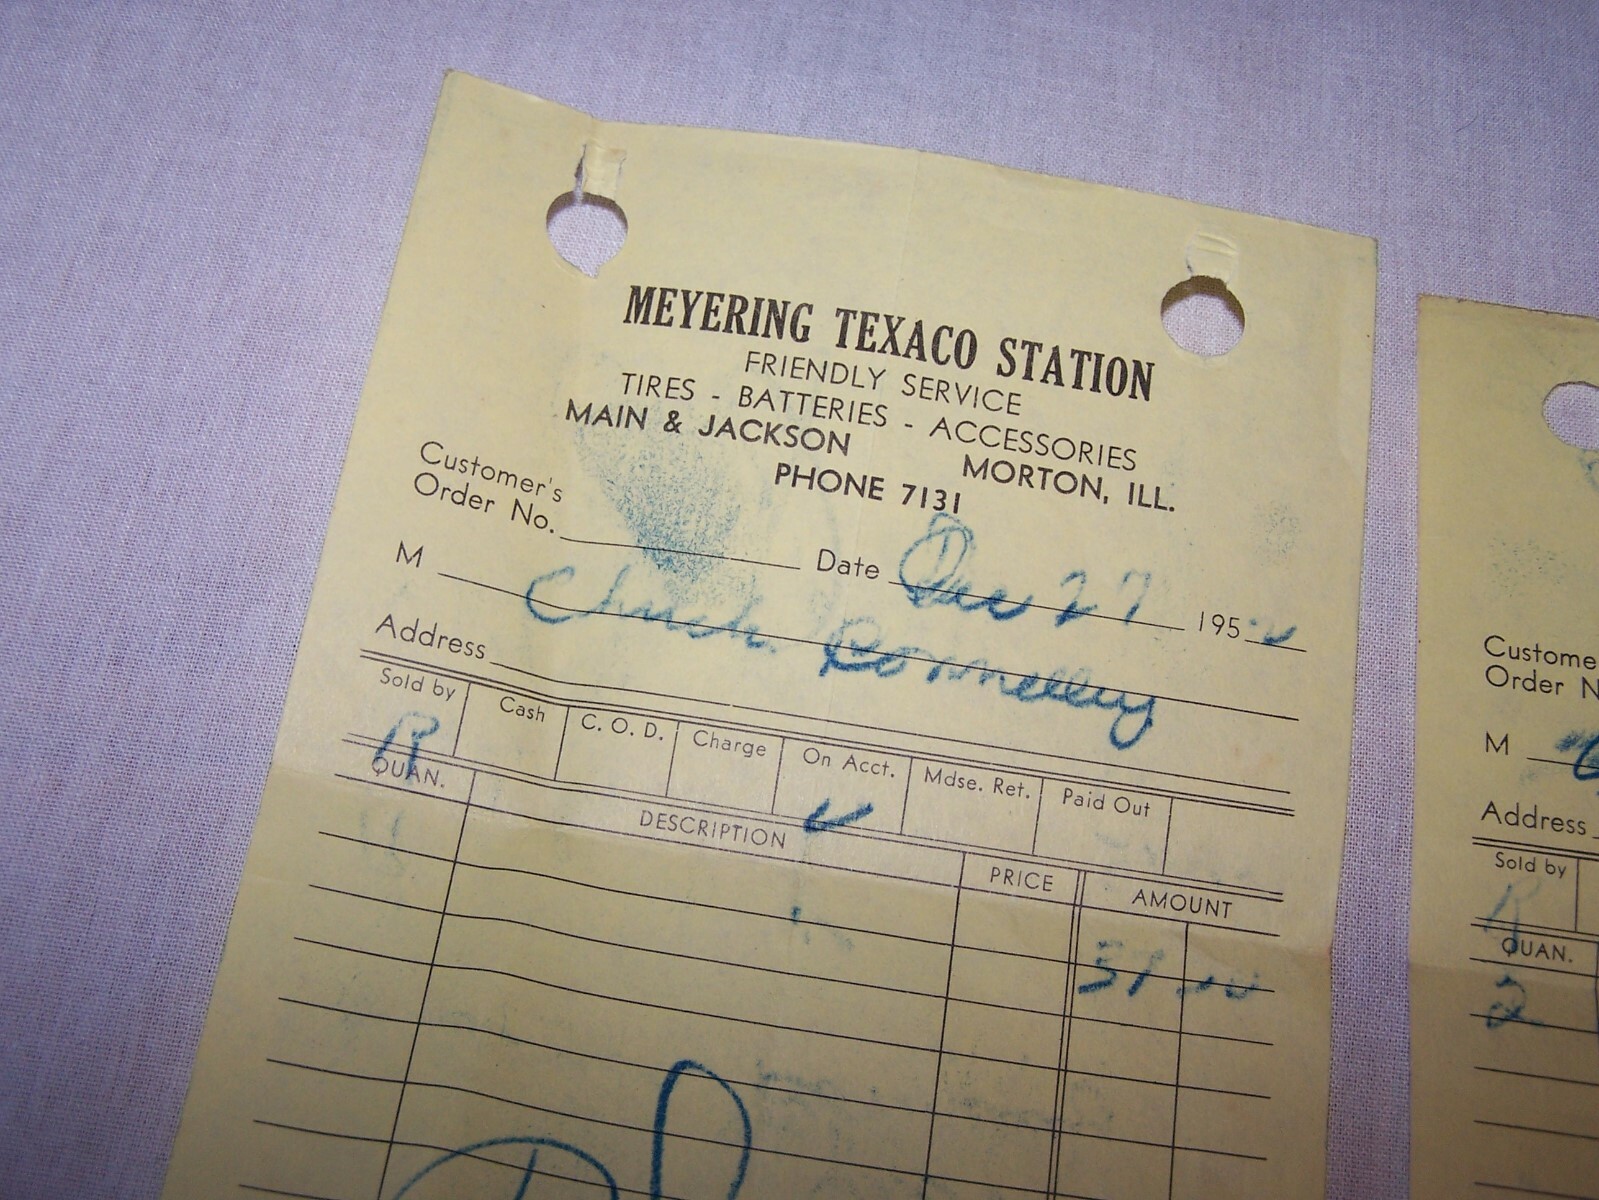 MEYERING TEXACO STATION
FRIENDLY SERVICE
TIRES - BATTERIES - ACCESSORIES
MAIN & JACKSON MORTON, ILL.
PHONE 7131
Customer's
Order No. Date Dec 27 195
M Chuck Connelly
Address
Sold by Cash C. O. D. Charge On Acct. Mdse. Ret. Paid Out
R ✓
QUAN. DESCRIPTION PRICE AMOUNT
57
Custome
Order N
M
Address
Sold by
R
QUAN.
2